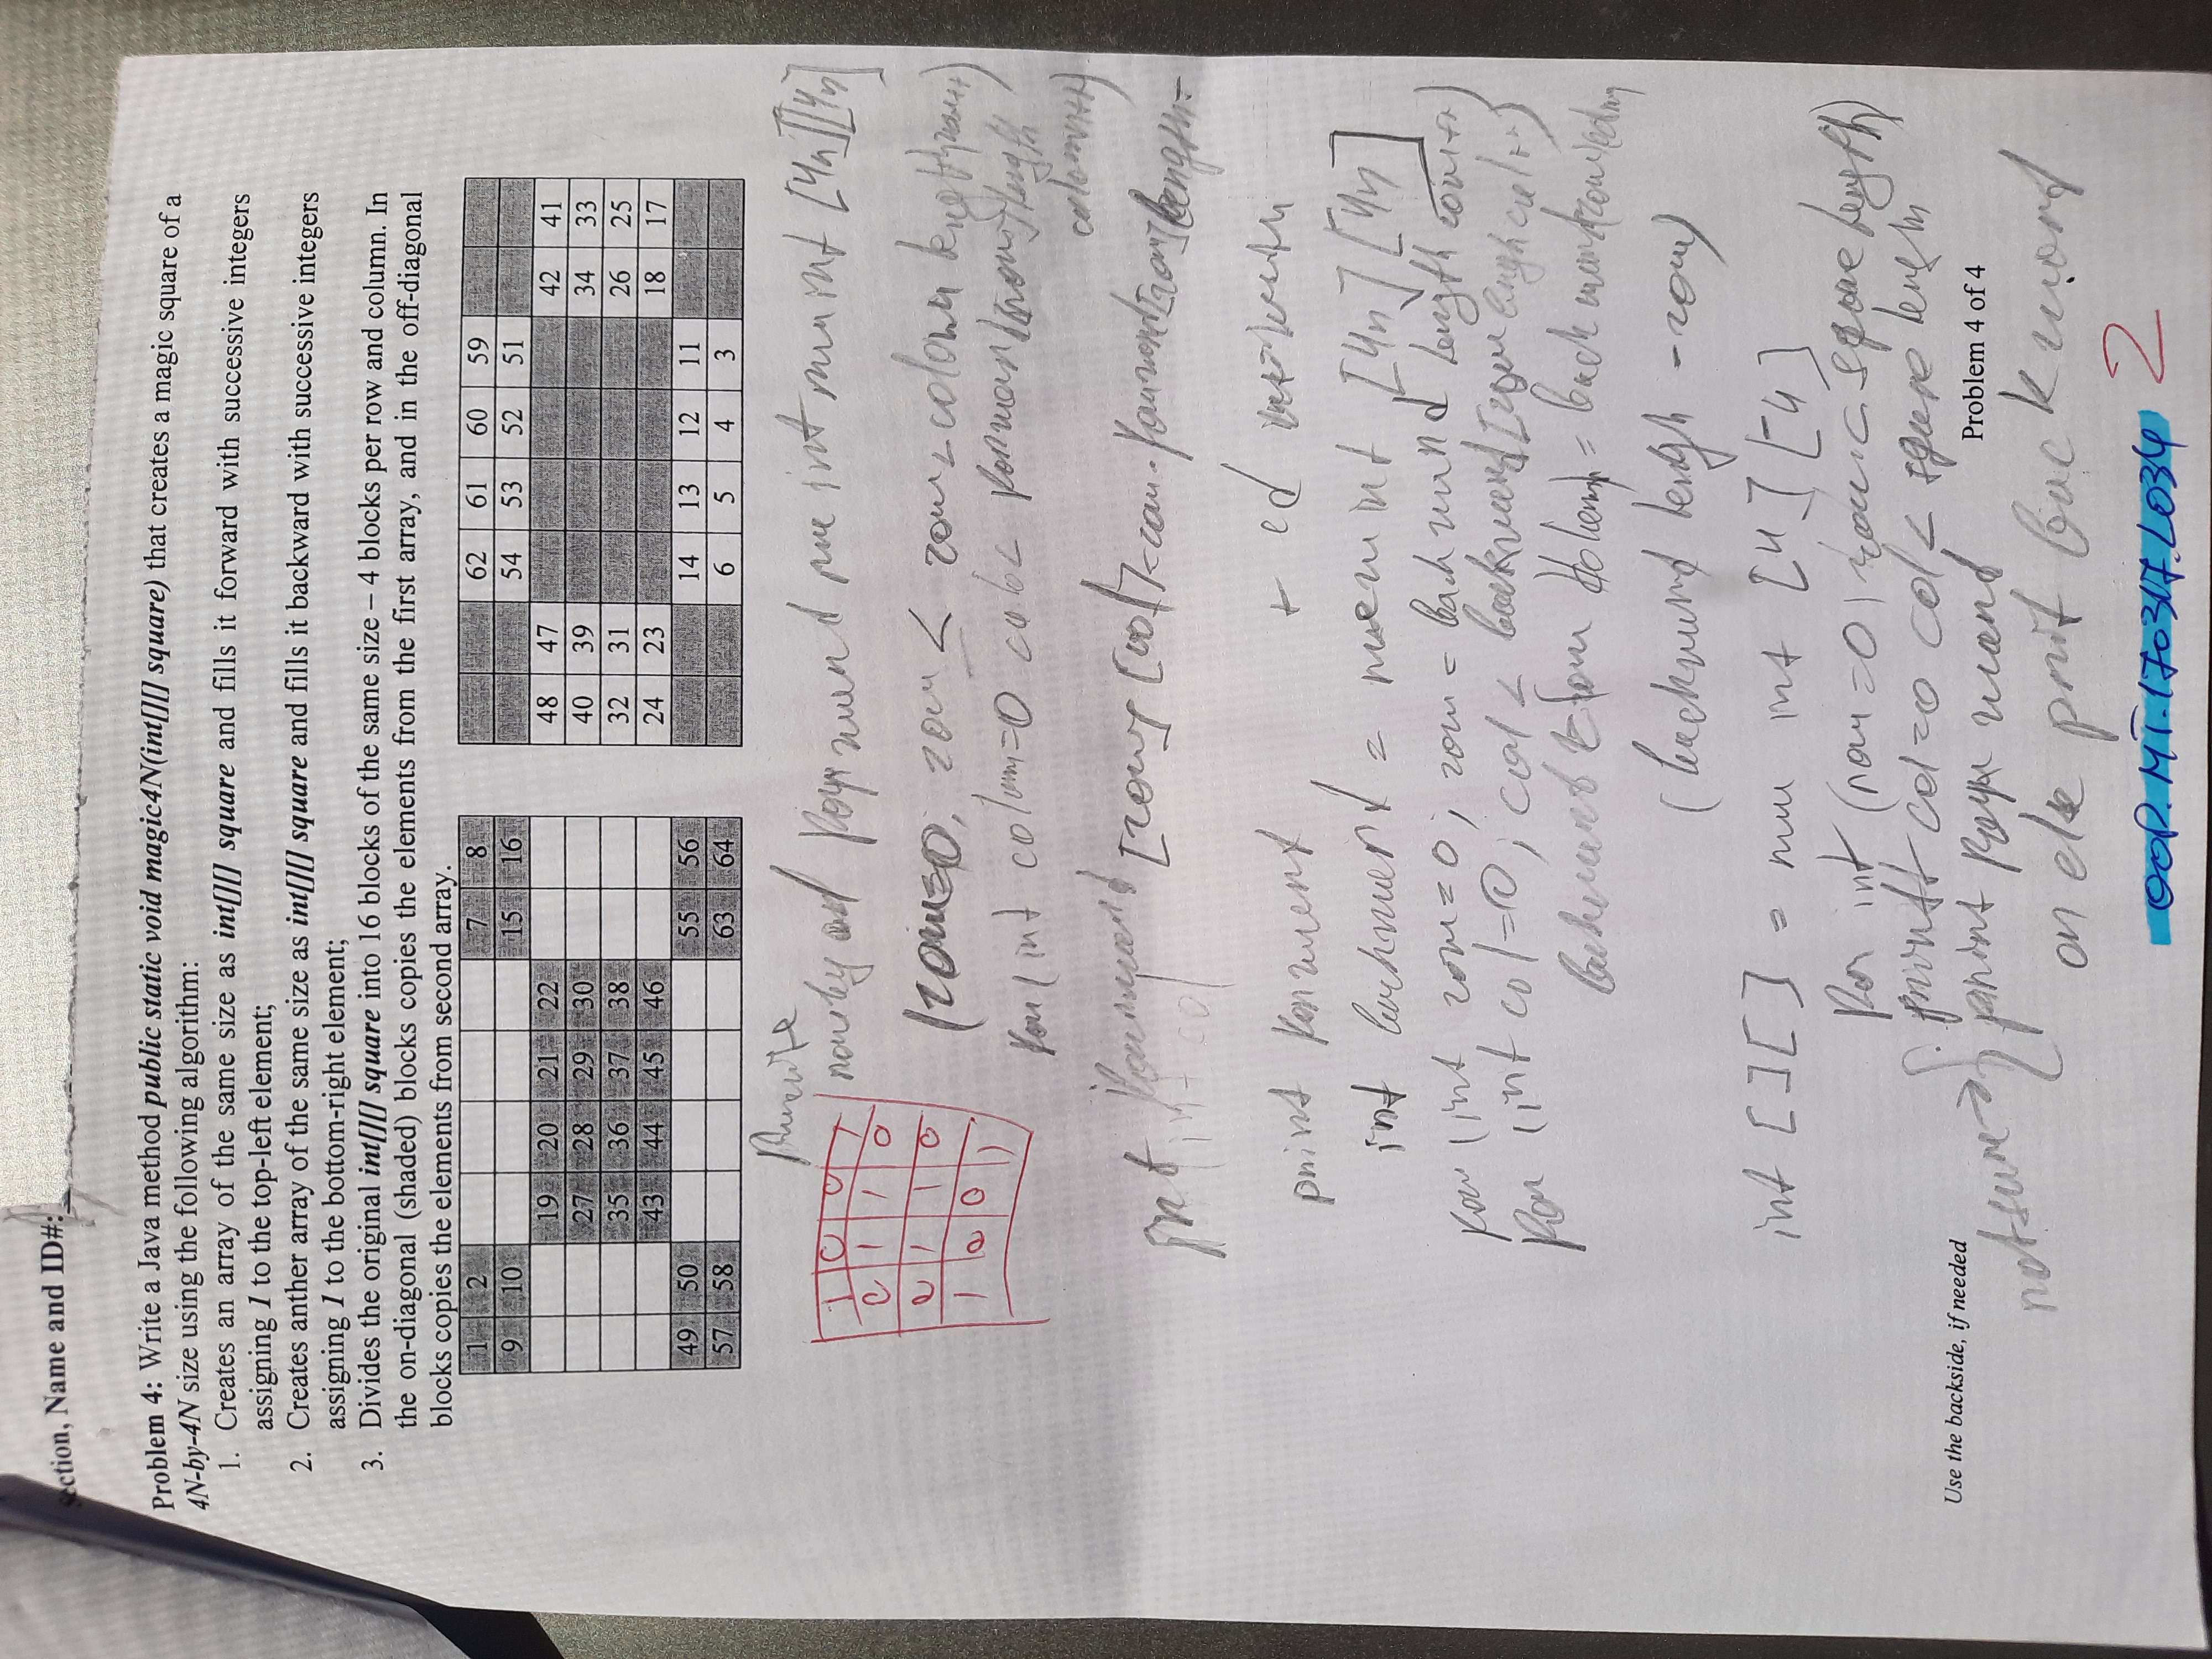 ection, Name and ID#:
Problem 4: Write a Java method public static void magic4N(int[][] square) that creates a magic square of a
4N-by-4N size using the following algorithm:
1. Creates an array of the same size as int[][] square and fills it forward with successive integers
assigning 1 to the top-left element;
2. Creates anther array of the same size as int[][] square and fills it backward with successive integers
assigning 1 to the bottom-right element;
3. Divides the original int[][] square into 16 blocks of the same size – 4 blocks per row and column. In
the on-diagonal (shaded) blocks copies the elements from the first array, and in the off-diagonal
blocks copies the elements from second array.
1 2 7 8
9 10 15 16
19 20 21 22
27 28 29 30
35 36 37 38
43 44 45 46
49 50 55 56
57 58 63 64
62 61 60 59
54 53 52 51
48 47 42 41
40 39 34 33
32 31 26 25
24 23 18 17
14 13 12 11
6 5 4 3
1 0 0 1
0 1 1 0
0 1 1 0
1 0 0 1
int [4n][4n]
(row=0; row < row < colown length; row++)
for (int colum=0 col< forward[row] length
column++)
int forward [row] [col] = row . forward[row] length
int col
print forward +
int backward = new int [4n] [4n]
for (int row = 0; row = backward length row++)
for (int col = 0; col < backward [row length col++)
backward
(backward lengh - row)
int [ ] [ ] = new int [4] [4]
for int (row = 0; row < square length)
printf col = 0 col < square length
print forward
not sure →
or else prit backward
Use the backside, if needed
Problem 4 of 4
OOP.MT.170317.L034
2